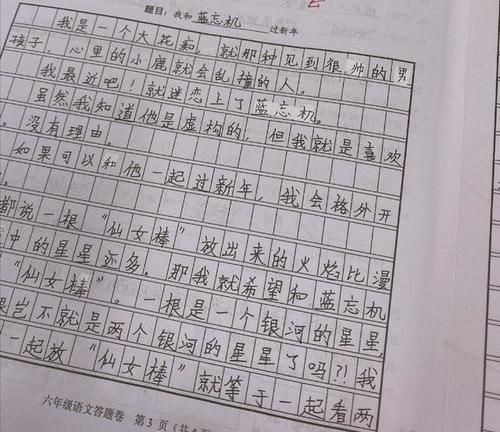 题目：我和蓝忘机 过新年
我是一个大花痴，就那种见到很帅的男
孩子，心里的小鹿就会乱撞的人。
我最近吧！就迷恋上了蓝忘机。
虽然我知道他是虚构的，但我就是喜欢
，没有理由。
如果可以和他一起过新年，我会格外开
都说一根“仙女棒”放出来的火焰比漫
中的星星还多。那我就希望和蓝忘机
“仙女棒”。一根是一个银河的星星，
岂不就是两个银河的星星了吗？！我
一起放“仙女棒”就等于一起看两
六年级语文答题卷 第3页（共4